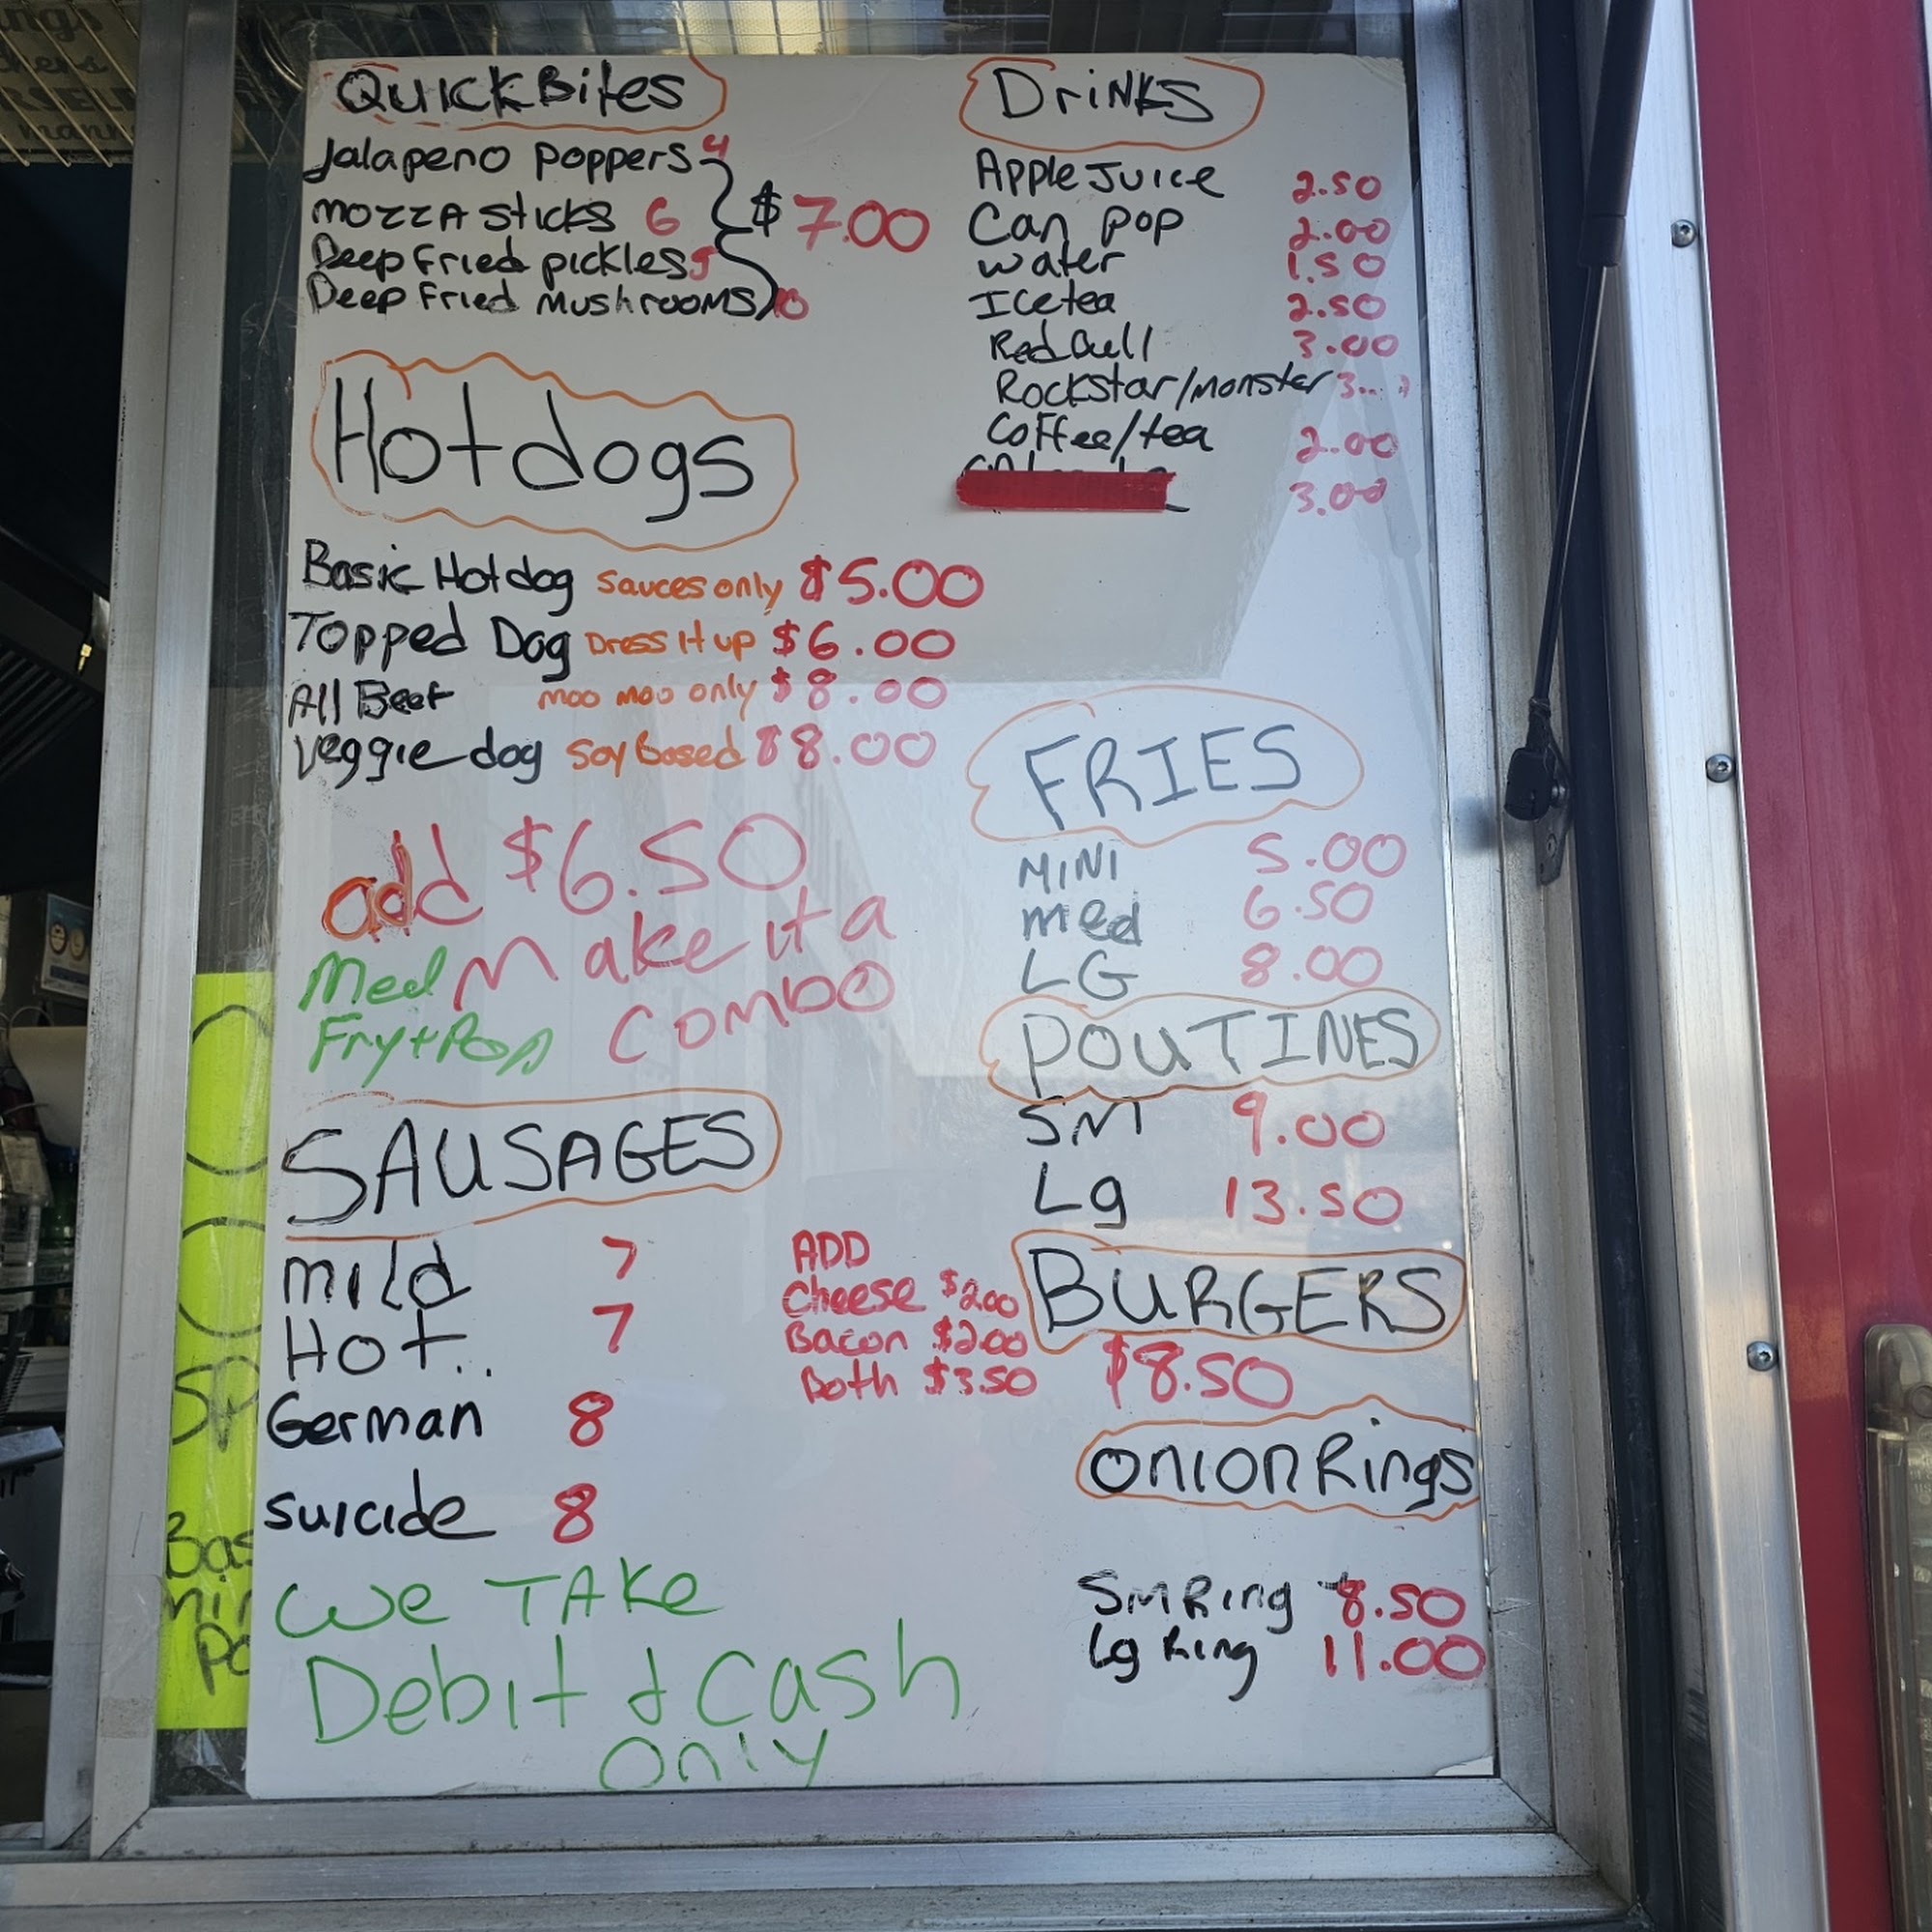 Quick Bites
Jalapeno poppers 4
mozzA sticks 6
Deep Fried pickles 5
Deep Fried Mushrooms 10
$7.00
Drinks
Apple Juice 2.50
Can pop 2.00
water 1.50
Icetea 2.50
Red Bull 3.00
Rockstar/monster 3...
Coffee/tea 2.00
3.00
Hotdogs
Basic Hotdog Sauces only $5.00
Topped Dog Dress It up $6.00
All Beef moo moo only $8.00
veggie dog Soy Based $8.00
add $6.50
Make it a
combo
Med
Fry + Pop
FRIES
MINI 5.00
med 6.50
LG 8.00
POUTINES
SM 9.00
Lg 13.50
SAUSAGES
mild 7
Hot.. 7
German 8
suicide 8
ADD
Cheese $2.00
Bacon $2.00
Both $3.50
BURGERS
$8.50
onion Rings
SM Ring 8.50
Lg Ring 11.00
We TAKe
Debit & Cash
only